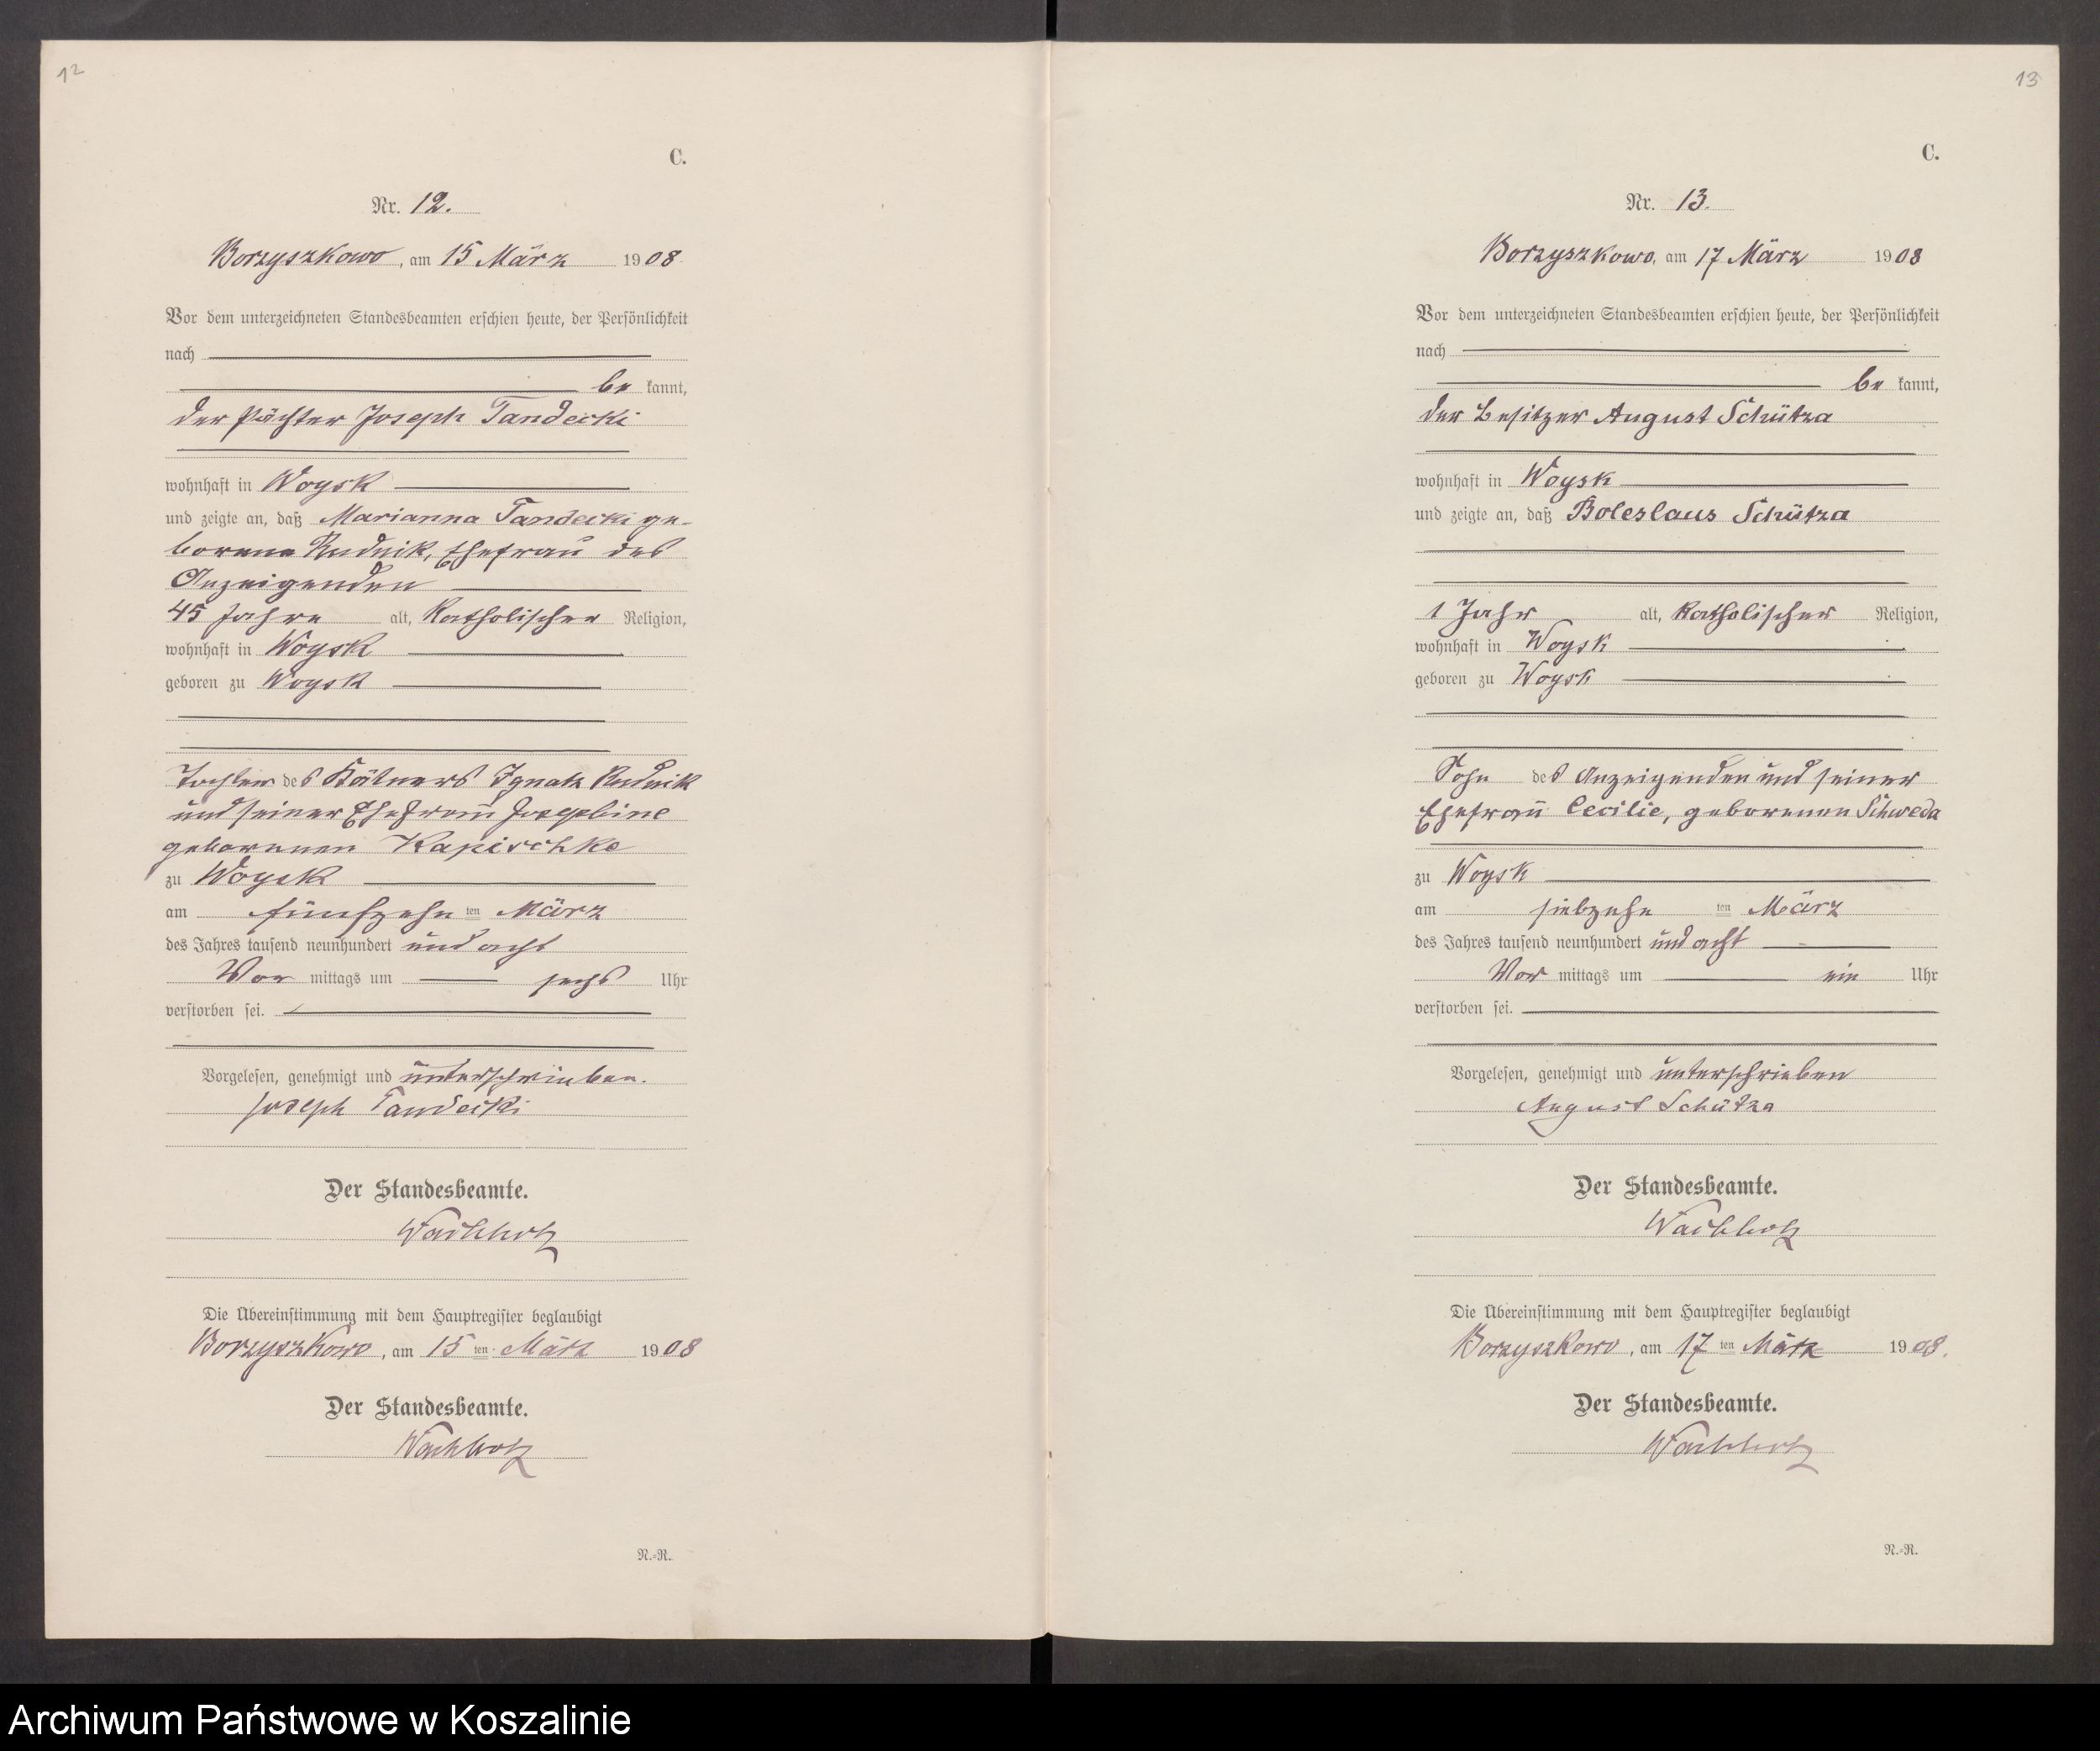 12
C.
Nr. 12.
Borzyszkowo, am 15 März 1908
Vor dem unterzeichneten Standesbeamten erschien heute, der Persönlichkeit
nach
be kannt,
der Pächter Joseph Tandecki
wohnhaft in Woysk
und zeigte an, daß Marianna Tandecki ge-
borene Rudnik, Ehefrau des
Anzeigenden
45 Jahre alt, katholischer Religion,
wohnhaft in Woysk
geboren zu Woysk
Tochter des Kätners Ignatz Rudnik
und seiner Ehefrau Josephine
geborenen Kapischke
zu Woysk
am fünfzehn ten März
des Jahres tausend neunhundert und acht
Vor mittags um sechs Uhr
verstorben sei.
Vorgelesen, genehmigt und unterschrieben.
Joseph Tandecki
Der Standesbeamte.
Wachholz
Die Übereinstimmung mit dem Hauptregister beglaubigt
Borzyszkowo, am 15 ten März 1908
Der Standesbeamte.
Wachholz
N.=R.
13
C.
Nr. 13.
Borzyszkowo, am 17 März 1908
Vor dem unterzeichneten Standesbeamten erschien heute, der Persönlichkeit
nach
be kannt,
der Besitzer August Schütza
wohnhaft in Woysk
und zeigte an, daß Boleslaus Schütza
1 Jahr alt, katholischer Religion,
wohnhaft in Woysk
geboren zu Woysk
Sohn des Anzeigenden und seiner
Ehefrau Cecilie, geborenen Schweda
zu Woysk
am siebzehn ten März
des Jahres tausend neunhundert und acht
Vor mittags um ein Uhr
verstorben sei.
Vorgelesen, genehmigt und unterschrieben
August Schütza
Der Standesbeamte.
Wachholz
Die Übereinstimmung mit dem Hauptregister beglaubigt
Borzyszkowo, am 17 ten März 1908.
Der Standesbeamte.
Wachholz
N.=R.
Archiwum Państwowe w Koszalinie